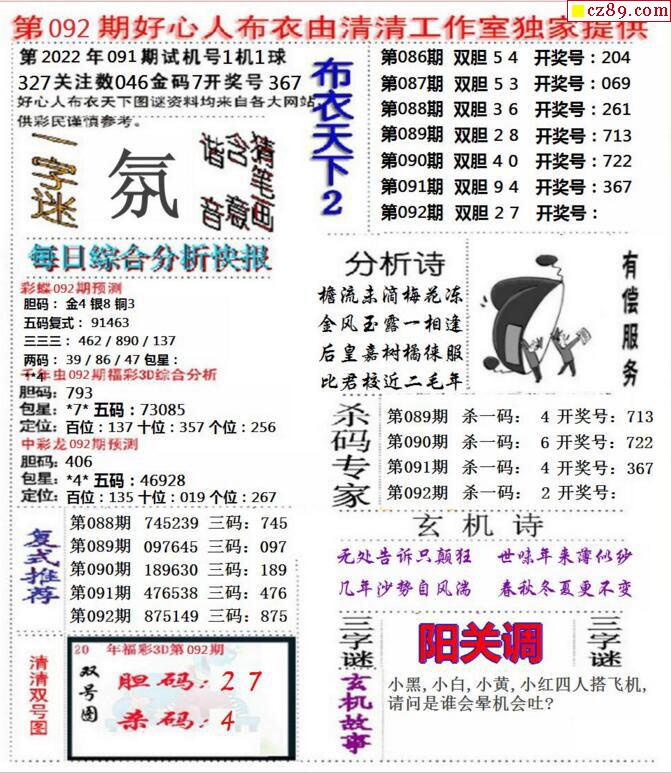 cz89.com
第092期好心人布衣由清清工作室独家提供
第2022年091期试机号1机1球
327关注数046金码7开奖号367
好心人布衣天下图谜资料均来自各大网站,
供彩民谨慎参考。
一字迷
氛
猜笔画
含意
谐音
每日综合分析快报
彩蝶092期预测
胆码： 金4 银8 铜3
五码复式： 91463
三三三： 462 / 890 / 137
两码： 39 / 86 / 47 包星：
**4
千年虫092期福彩3D综合分析
胆码：793
包星：*7* 五码：73085
定位：百位：137 十位：357 个位：256
中彩龙092期预测
胆码：406
包星：*4* 五码：46928
定位：百位：135 十位：019 个位：267
复式推荐
第088期 745239 三码：745
第089期 097645 三码：097
第090期 189630 三码：189
第091期 476538 三码：476
第092期 875149 三码：875
清清双号图
20 年福彩3D第092期
双号图
胆码：27
杀码：4
布衣天下2
第086期 双胆 5 4 开奖号：204
第087期 双胆 5 3 开奖号：069
第088期 双胆 3 6 开奖号：261
第089期 双胆 2 8 开奖号：713
第090期 双胆 4 0 开奖号：722
第091期 双胆 9 4 开奖号：367
第092期 双胆 2 7 开奖号：
分析诗
檐流未滴梅花冻
金风玉露一相逢
后皇嘉树橘徕服
比君校近二毛年
有偿服务
杀码专家
第089期 杀一码： 4 开奖号：713
第090期 杀一码： 6 开奖号：722
第091期 杀一码： 4 开奖号：367
第092期 杀一码： 2 开奖号：
玄机诗
无处告诉只颠狂 世味年来薄似纱
几年沙势自风湍 春秋冬夏更不变
三字谜
阳关调
三字谜
玄机故事
小黑,小白,小黄,小红四人搭飞机,
请问是谁会晕机会吐?